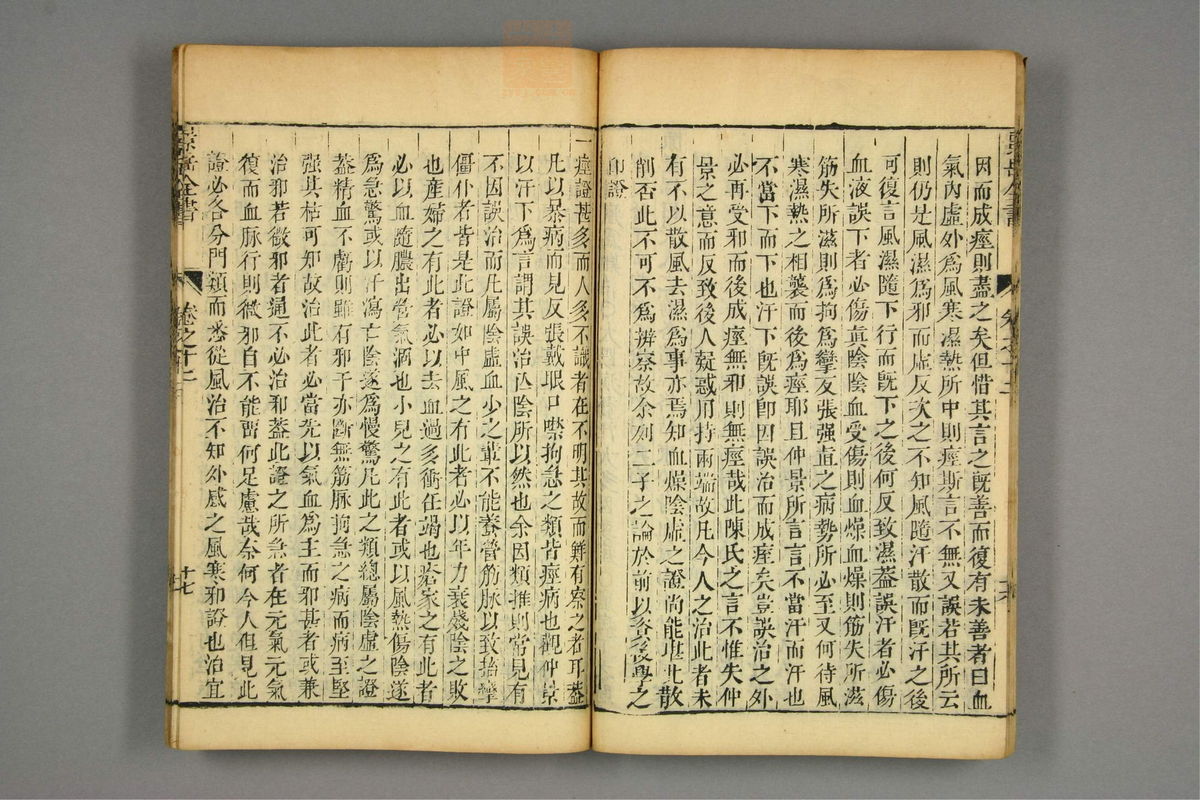 景岳全書
卷之十二
因而成痙則盡之矣但惜其言之既善而復有未善者曰血
氣內虛外爲風寒濕熱所中則痙斯言不無又誤若其所云
則仍是風濕爲邪而虛反次之不知風隨汗散而既汗之後
何復言風濕隨下行而既下之後何反致濕蓋誤汗者必傷
血液誤下者必傷眞陰陰血受傷則血燥血燥則筋失所滋
筋失所滋則爲拘爲攣反張强直之病勢所必至又何待風
寒濕熱之相襲而後爲痙耶且仲景所言言不當汗而汗也
不當下而下也汗下既誤卽因誤治而成痙矣豈誤治之外
必再受邪而後成痙無邪則無痙哉此陳氏之言不惟失仲
景之意而反致後人疑惑用持兩端故凡今人之治此者未
有不以散風去濕爲事亦焉知血燥陰虛之證尚能堪此散
削否此不可不爲辨察故余列二子之論於前以資後學之
印證
一痙證甚多而人多不識者在不明其故而鮮有察之者耳蓋
凡以暴病而見反張戴眼口噤拘急之類皆痙病也觀仲景
以汗下爲言謂其誤治亡陰所以然也余因類推則常見有
不因誤治而凡屬陰虛血少之輩不能養營筋脉以致搐攣
僵仆者皆是此證如中風之有此者必以年力衰殘陰之敗
也產婦之有此者必以去血過多衝任竭也瘡家之有此者
必以血隨膿出營氣涸也小兒之有此者或以風熱傷陰遂
爲急驚或以汗瀉亡陰遂爲慢驚凡此之類總屬陰虛之證
蓋精血不虧則雖有邪干亦斷無筋脉拘急之病而病至堅
强其枯可知故治此者必當先以氣血爲主而邪甚者或兼
治邪若微邪者通不必治邪蓋此證之所急者在元氣元氣
復而血脉行則微邪自不能留何足慮哉奈何今人但見此
證必各分門類而悉從風治不知外感之風寒邪證也治宜
景岳全書
卷之十二
十七